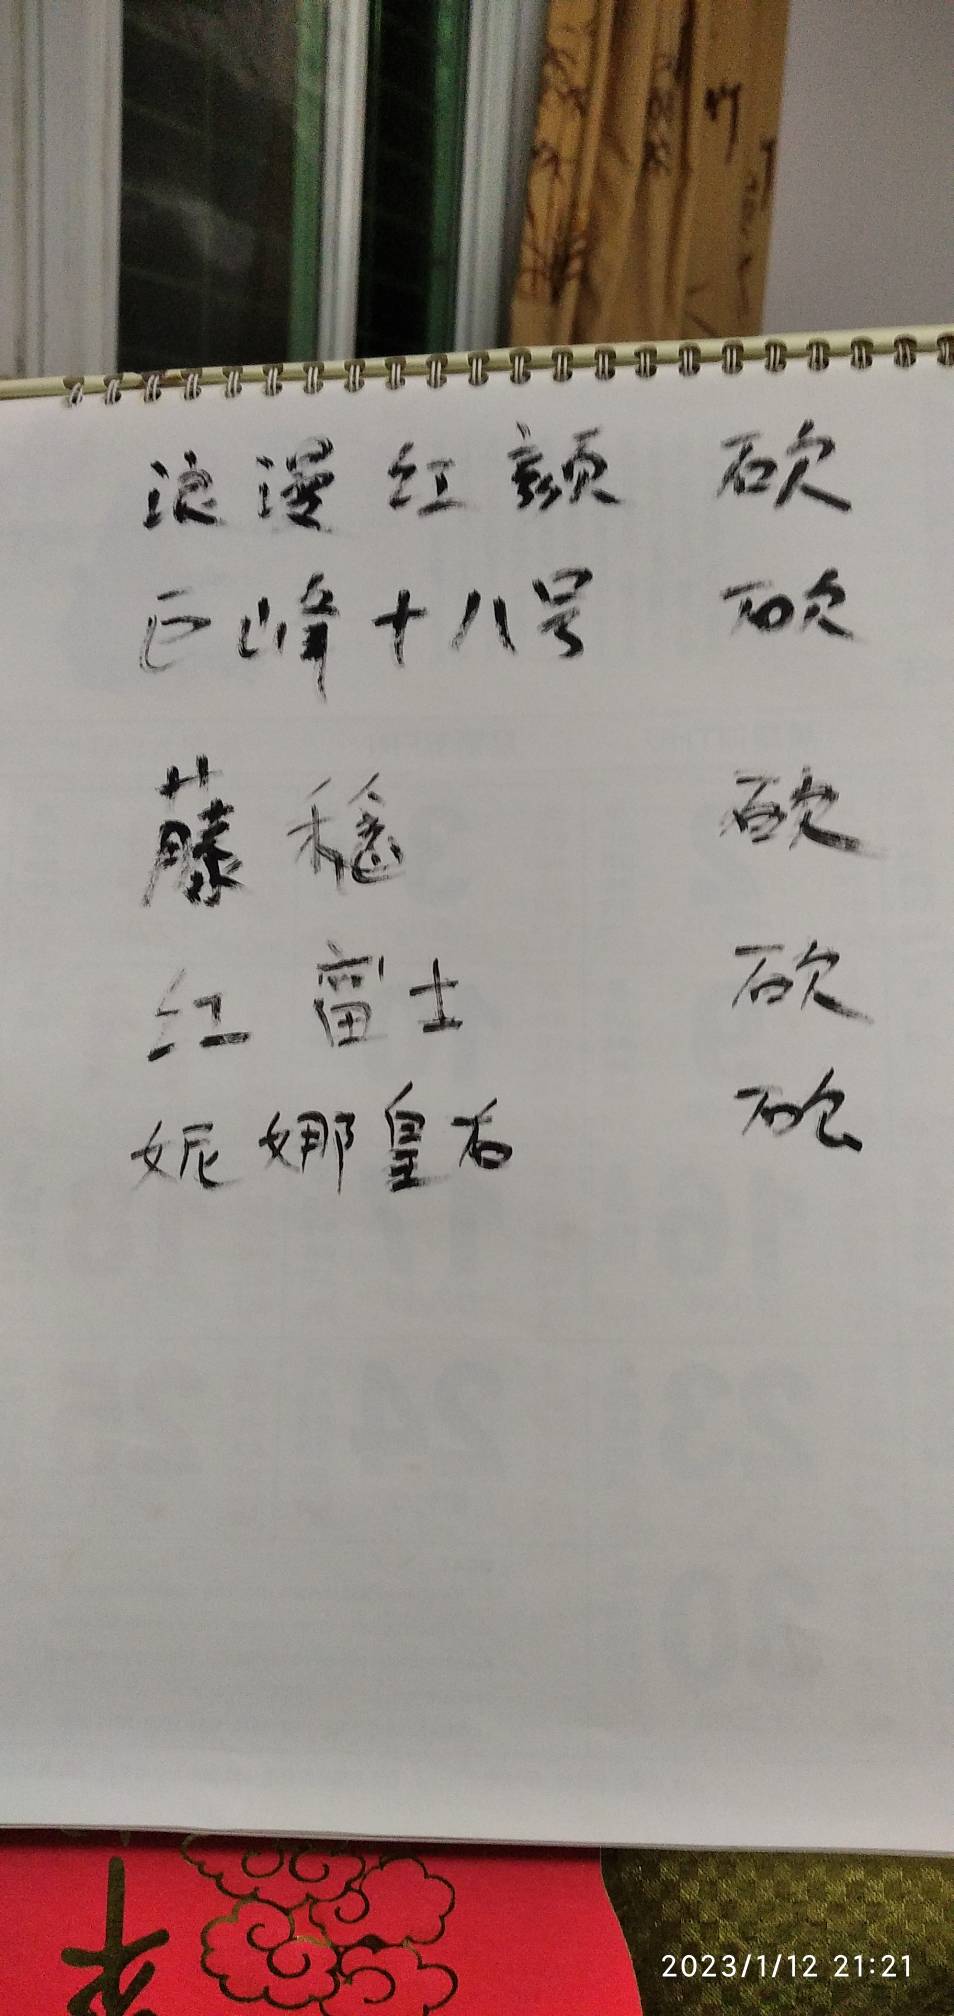 浪漫红颜 砍
巨峰十八号 砍
藤稳 砍
红富士 砍
妮娜皇后 砍
2023/1/12 21:21